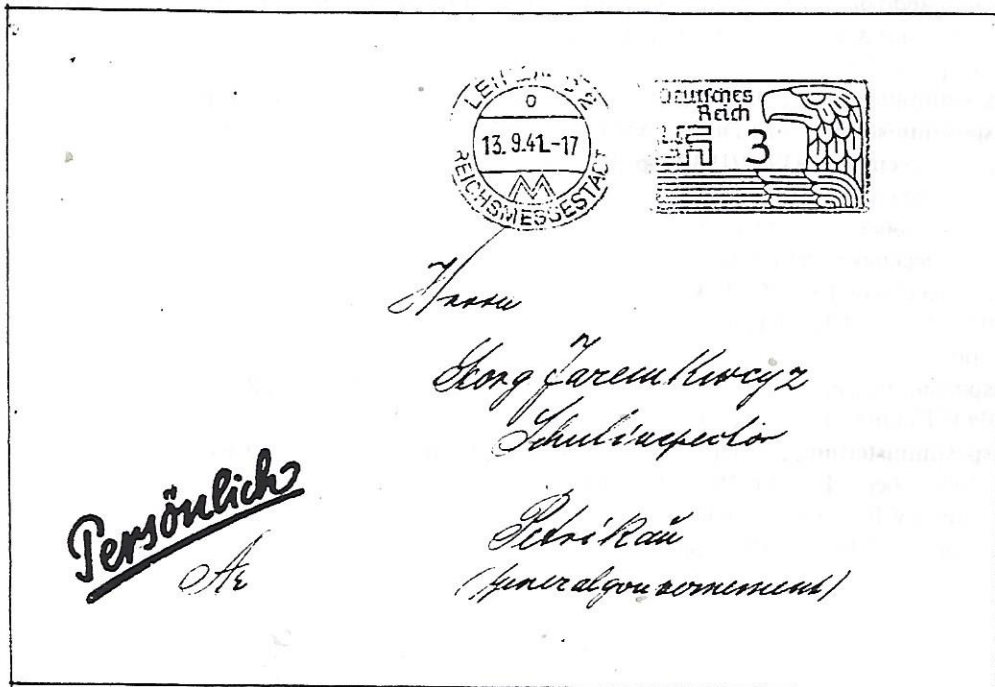 LEIPZIG
13.9.41.-17
REICHSMESSESTADT
Deutsches
Reich
3
Herrn
Georg Jaremkiwcyz
Schulinspector
Petrikau
(Generalgouvernement)
Persönlich